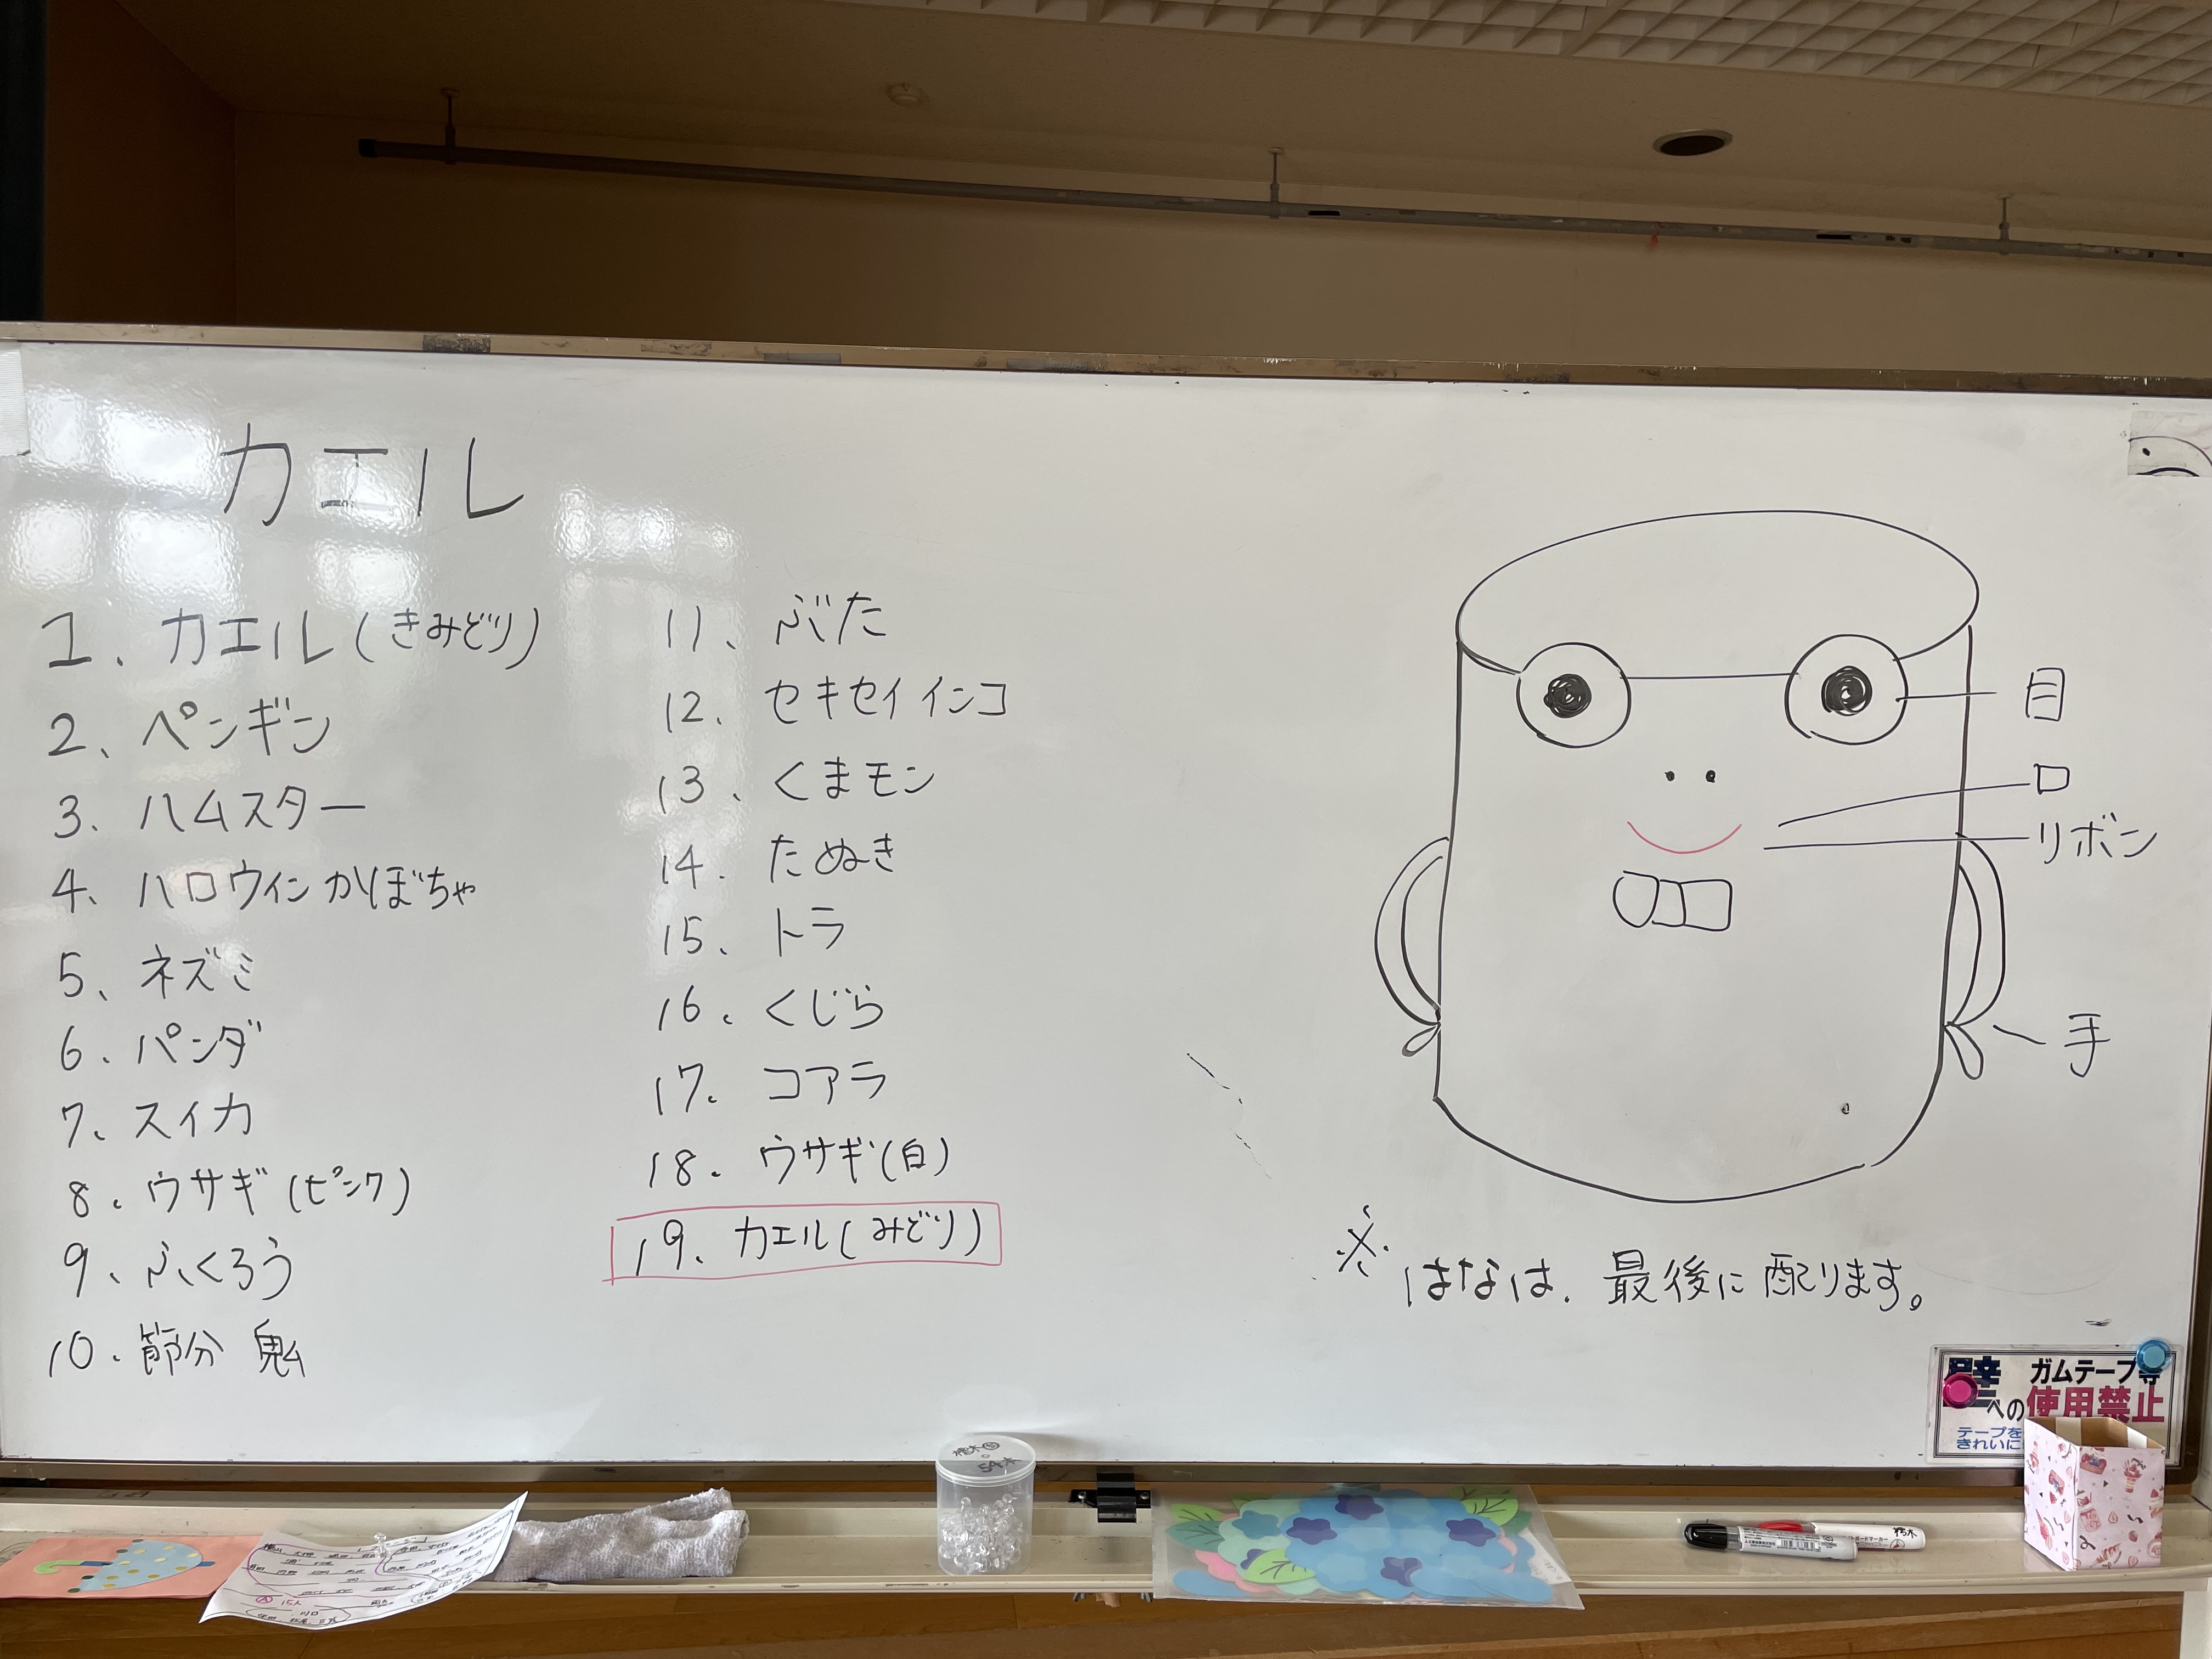 カエル
1. カエル(きみどり)
2、ペンギン
3. ハムスター
4、ハロウィンかぼちゃ
5、ネズミ
6. パンダ
7、スイカ
8. ウサギ(ピンク)
9、ふくろう
10. 節分 鬼
11、ぶた
12. セキセイインコ
13. くまモン
14. たぬき
15、トラ
16. くじら
17. コアラ
18. ウサギ(白)
19. カエル(みどり)
目
口
リボン
手
※はなは、最後に配ります。
壁への
ガムテープ等
使用禁止
テープを
きれいに
15人